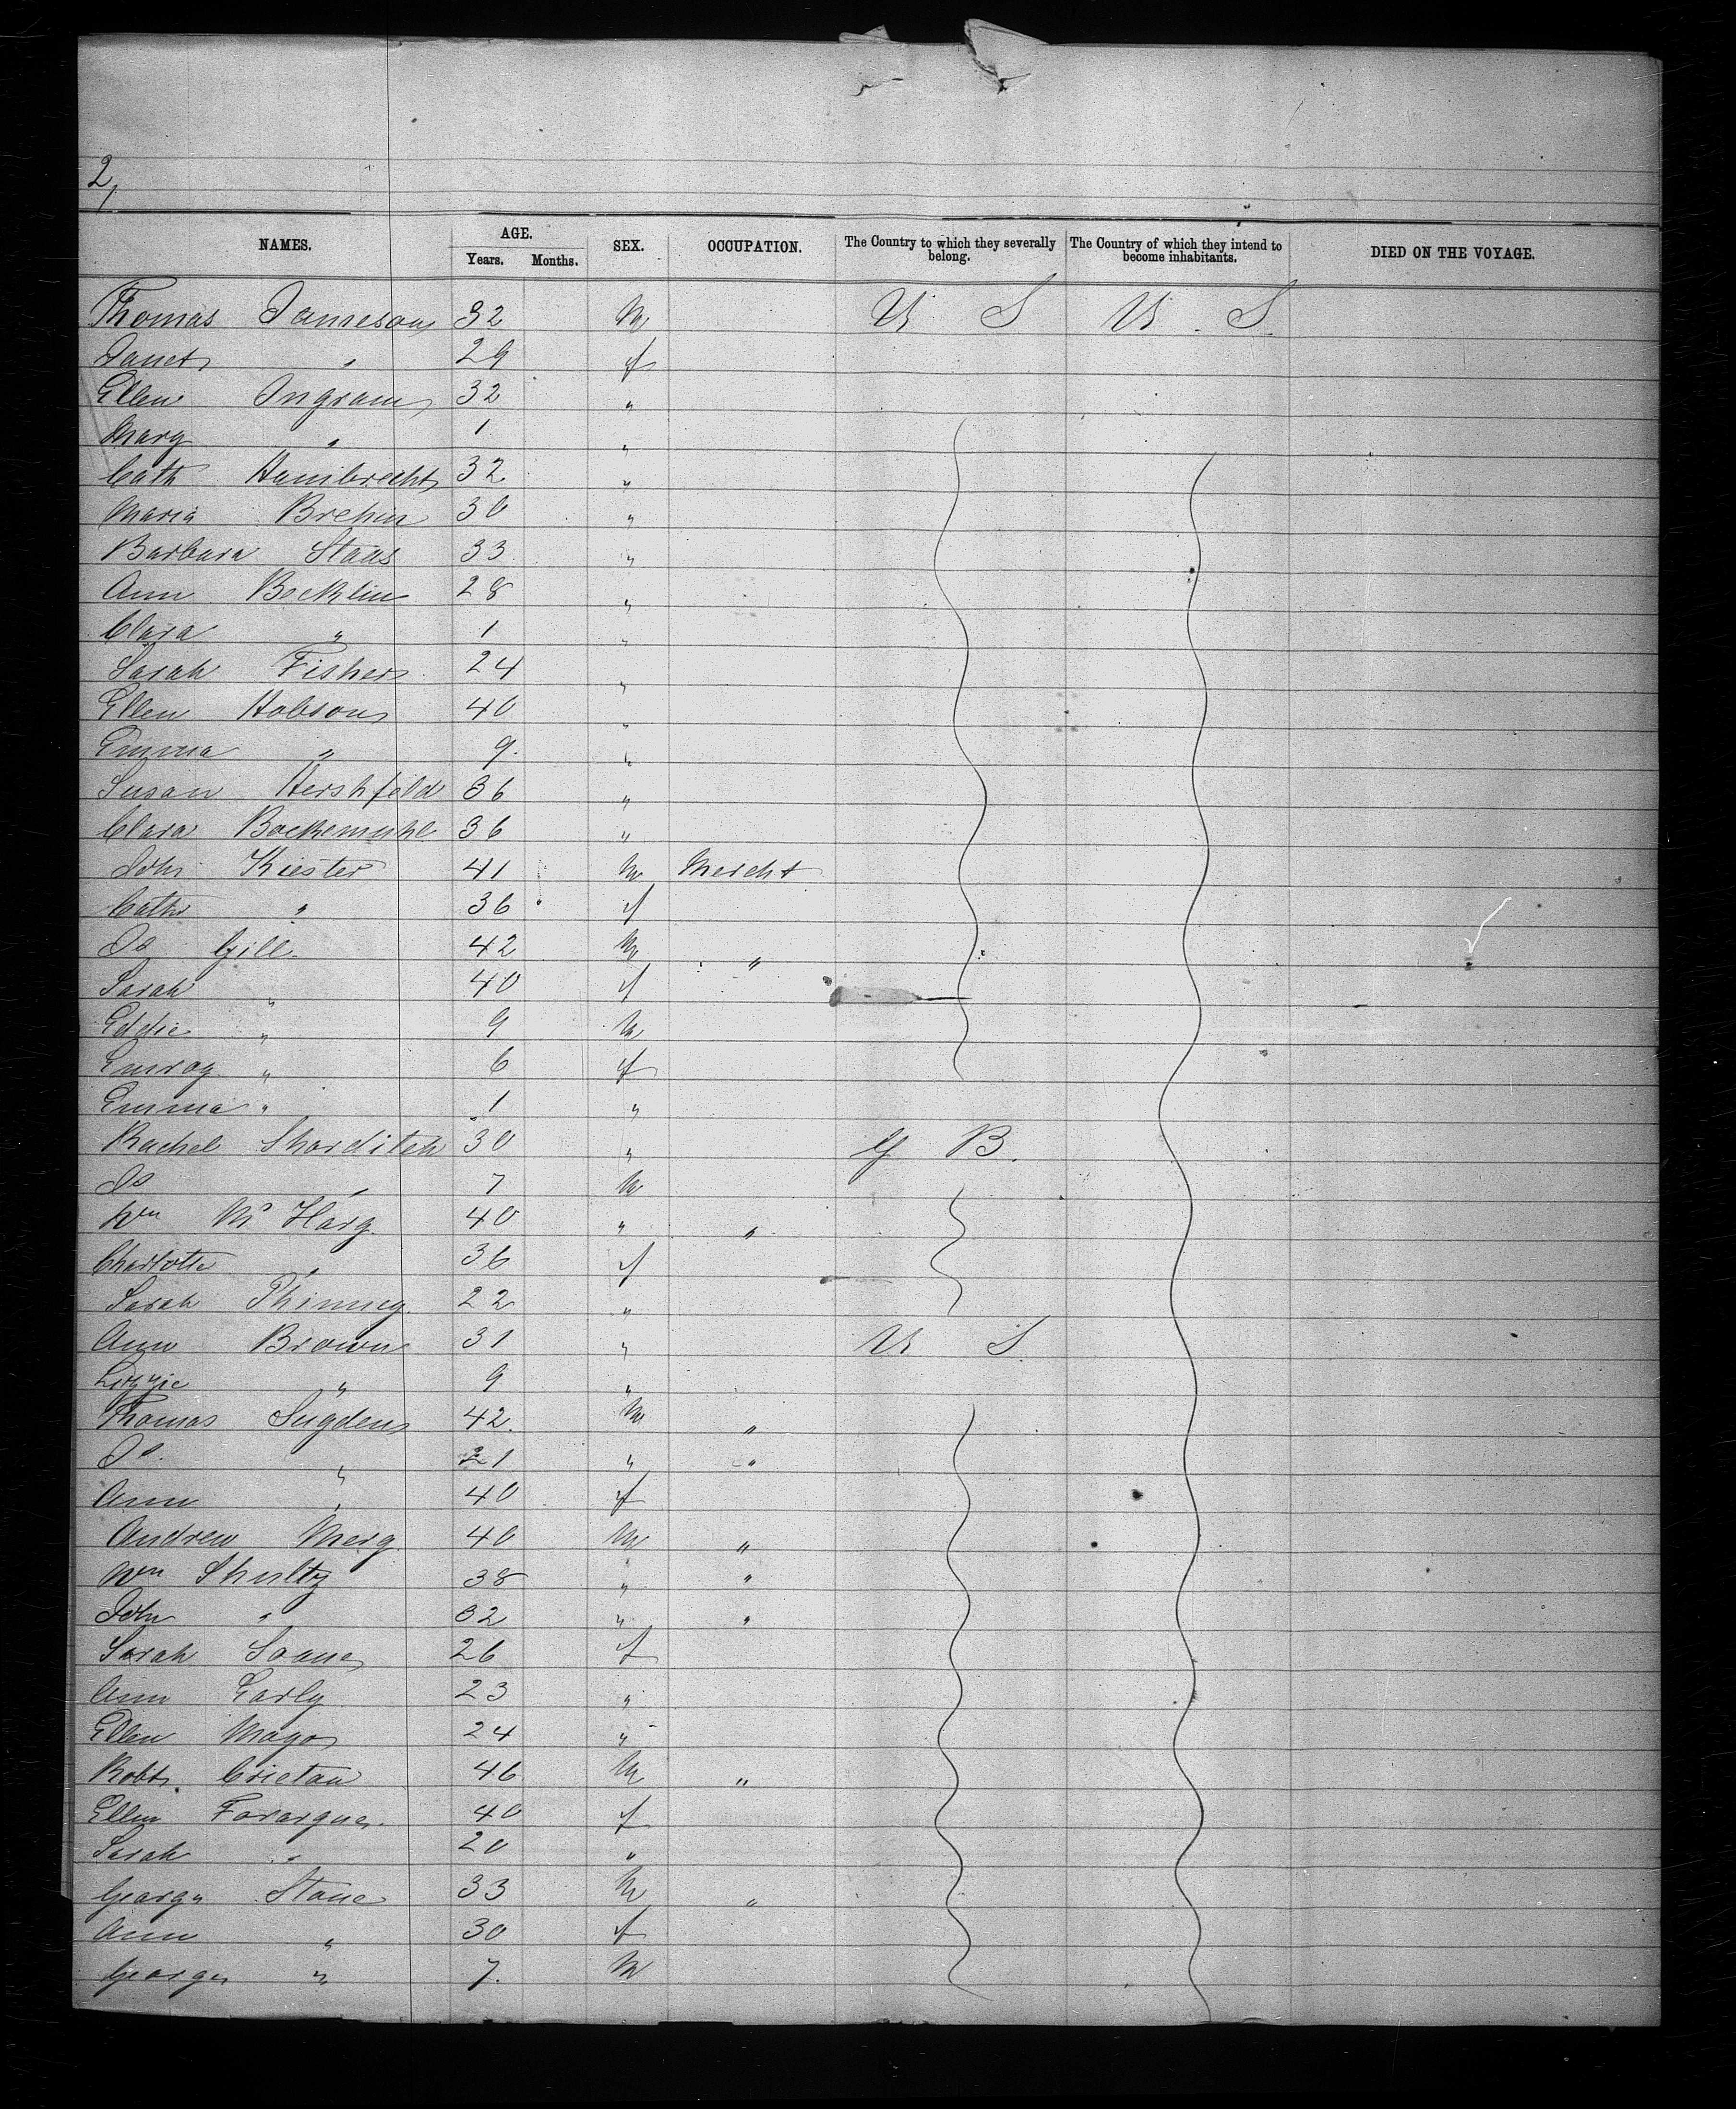 2,
NAMES. AGE. SEX. OCCUPATION. The Country to which they severally belong. The Country of which they intend to become inhabitants. DIED ON THE VOYAGE.
Years. Months.
Thomas Jameson 32 M U S U. S.
Janet " 29 f
Ellen Ingram 32 "
Mary " 1 "
Cath Hambrecht 32 "
Maria Brehm 30 "
Barbara Staus 33 "
Ann Bocklin 28 "
Clara " 1 "
Sarah Fisher 24 "
Ellen Hobson 40 "
Emma " 9. "
Susan Hershfeld 36 "
Clara Bockemuhl 36 "
John Kiester 41 M Mercht
Cath " 36 f
Js Gill 42 M "
Sarah " 40 f
Eddie " 9 M
" 6 f
Emma " 1 "
Rachel Sharditch 30 " G B.
Js " 7 M
Wm Mc Harg 40 " "
Charlotte " 36 f
Sarah Phinney 22 "
Ann Brown 31 " U S
Lizzie " 9 "
Thomas Sugden 42. M "
Js. " 21 " "
Ann " 40 f
Andrew Merg 40 M "
Wm Shultz 38 " "
John " 32 " "
Sarah Soane 26 f
Ann Early 23 "
Ellen Mayo 24 "
Robt. Crictan 46 M "
Ellen Forargue. 40 f
Sarah " 20 "
George Stone 33 M "
Ann " 30 f
George " 7. M